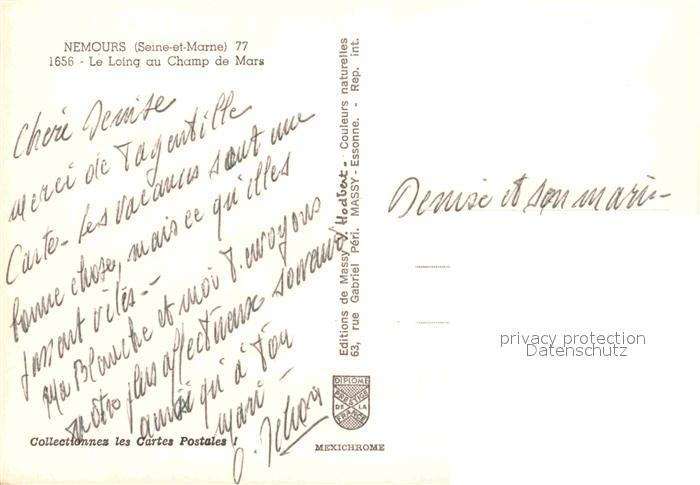 NEMOURS (Seine-et-Marne) 77
1656 - Le Loing au Champ de Mars
Chère Denise
merci de ta gentille
Carte - Les vacances sont une
bonne chose, mais ce qu'elles
passent vites -
Ma Blanche et moi t'envoyons
notre plus affectueux souvenir
ainsi qu'à ton
mari -
Collectionnez les Cartes Postales !
Editions de Massy Hodbert - Couleurs naturelles
63, rue Gabriel Péri. MASSY - Essonne. - Rep. int.
DIPLOME
PRESTIGE
DE LA
FRANCE
MEXICHROME
Denise et son mari -
privacy protection
Datenschutz